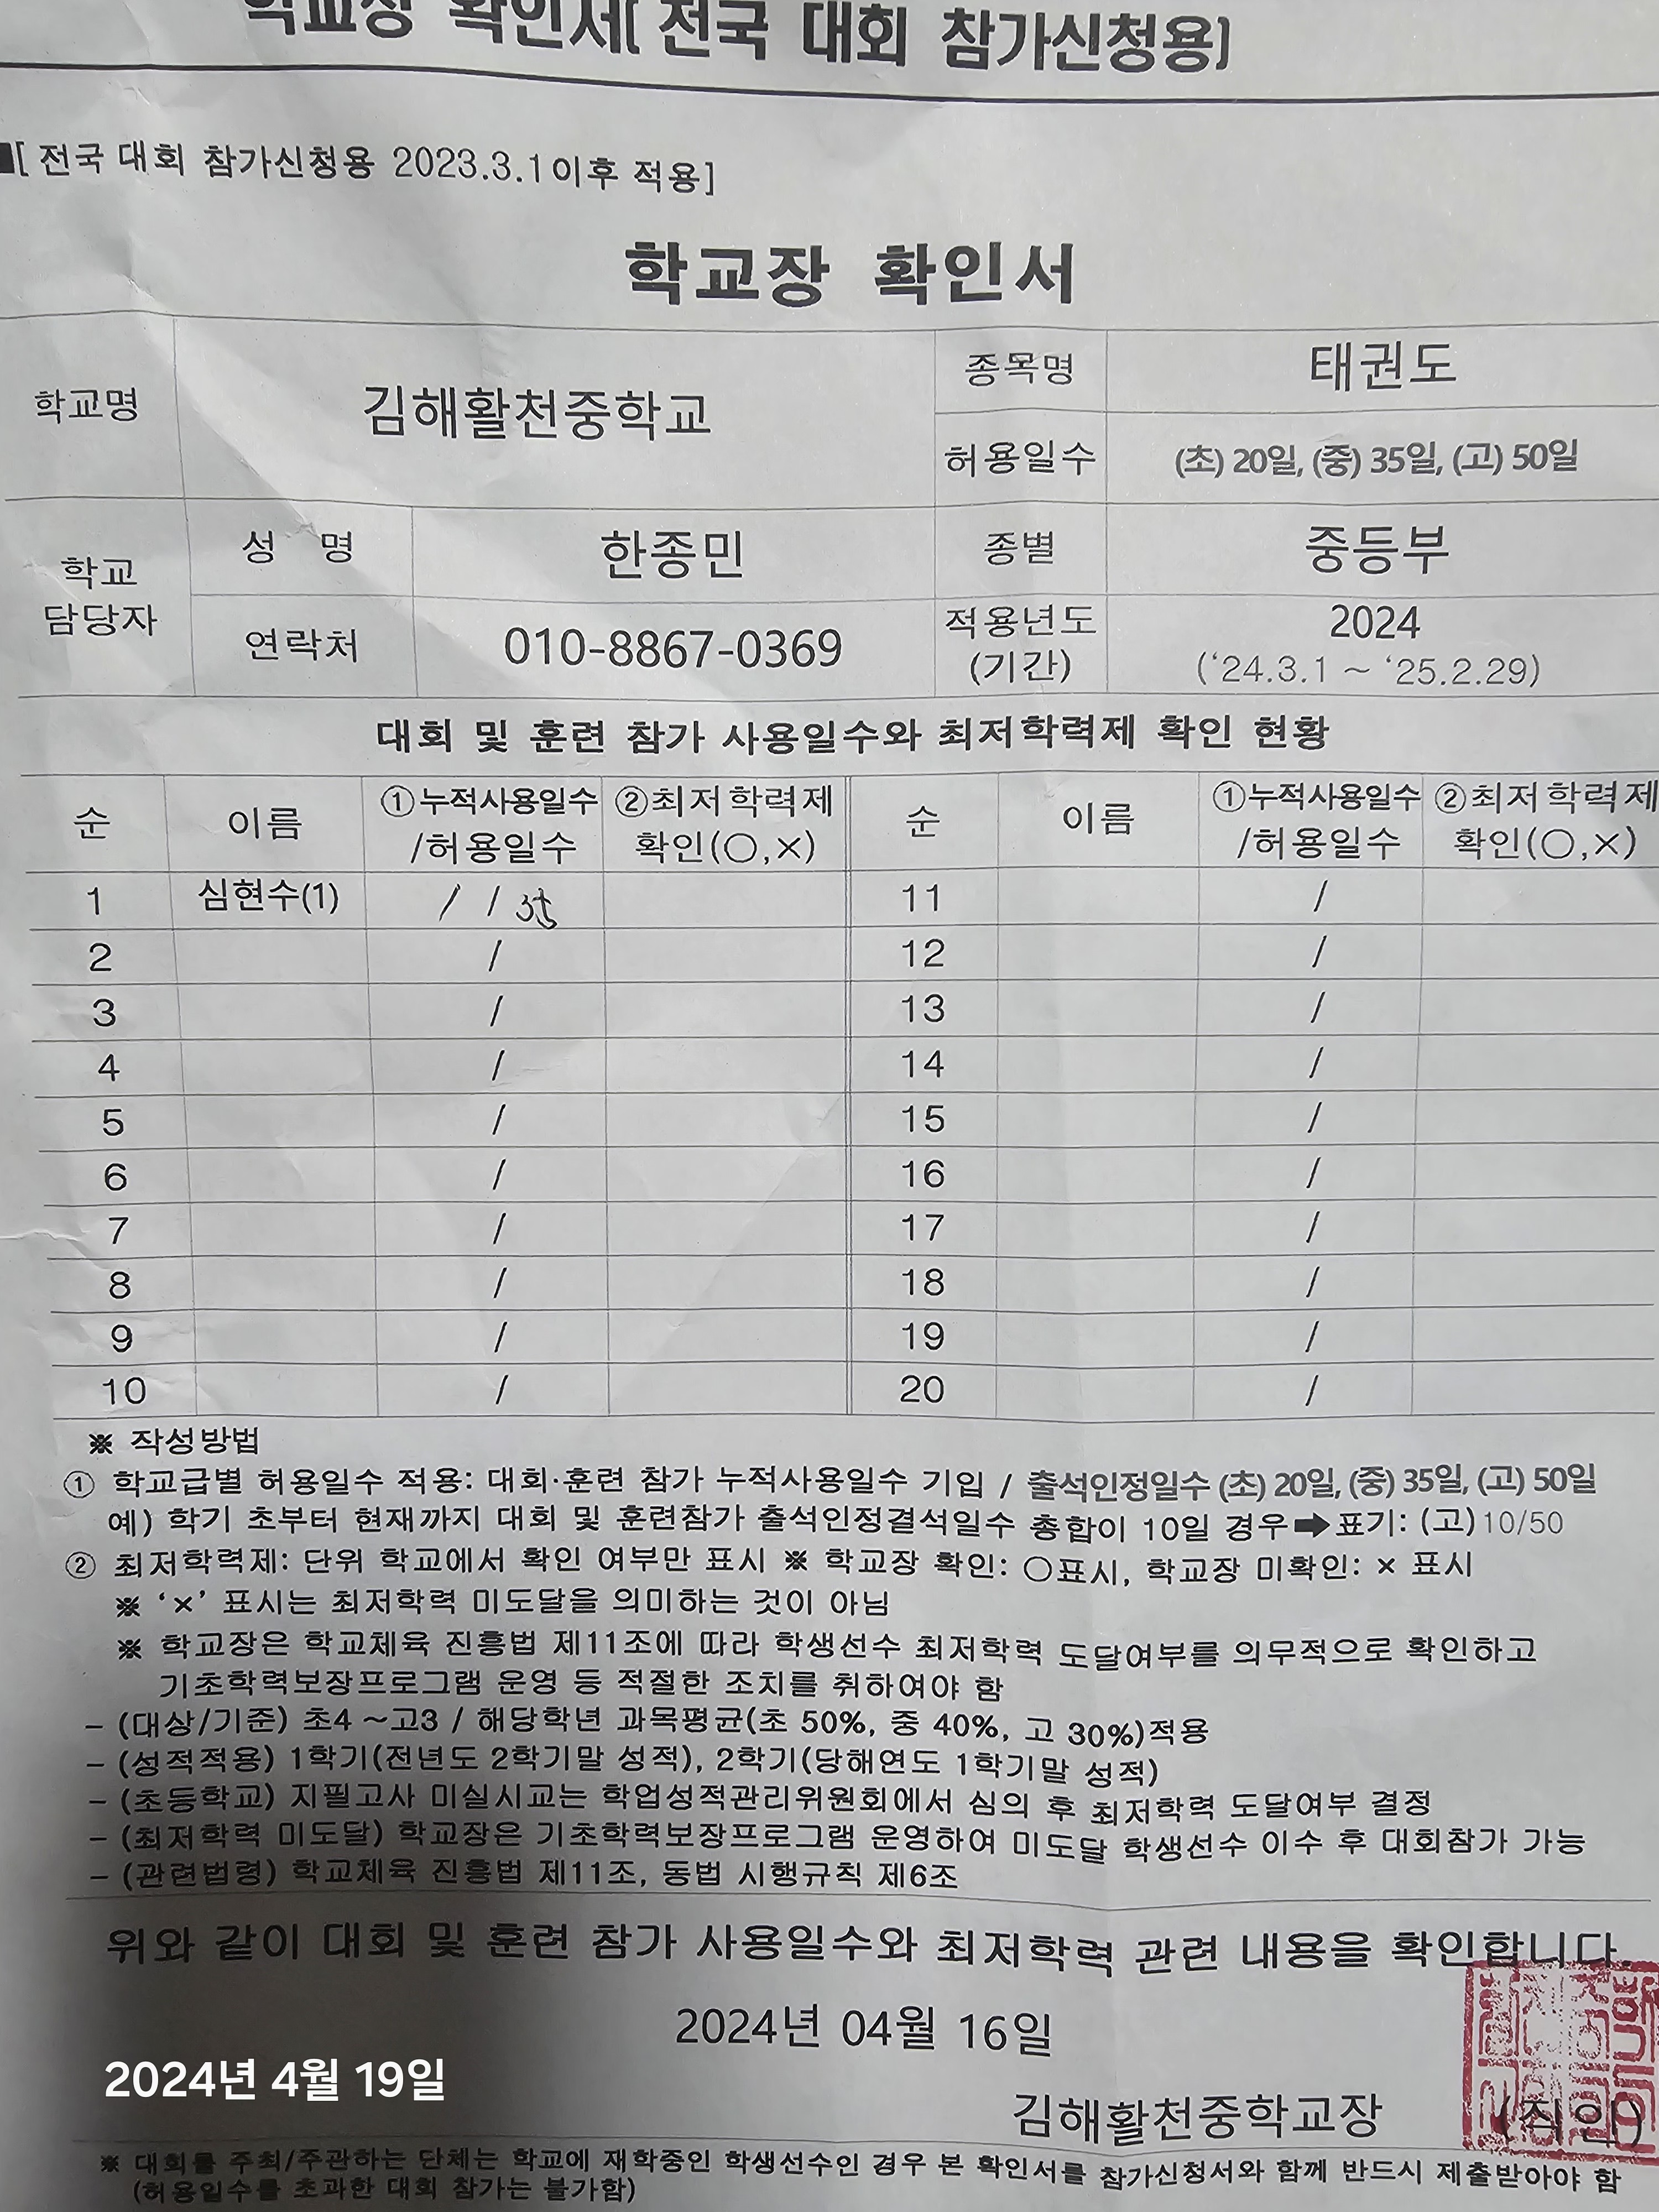 학교장 확인서[ 전국 대회 참가신청용]
■[ 전국 대회 참가신청용 2023.3.1이후 적용]
학교장 확인서
학교명 김해활천중학교 종목명 태권도
허용일수 (초) 20일, (중) 35일, (고) 50일
학교 담당자 성 명 한종민 종별 중등부
연락처 010-8867-0369 적용년도 (기간) 2024 ('24.3.1 ~ '25.2.29)
대회 및 훈련 참가 사용일수와 최저학력제 확인 현황
순 이름 ①누적사용일수 /허용일수 ②최저학력제 확인(○,×) 순 이름 ①누적사용일수 /허용일수 ②최저학력제 확인(○,×)
1 심현수(1) / / 11 /
2 / 12 /
3 / 13 /
4 / 14 /
5 / 15 /
6 / 16 /
7 / 17 /
8 / 18 /
9 / 19 /
10 / 20 /
※ 작성방법
① 학교급별 허용일수 적용: 대회·훈련 참가 누적사용일수 기입 / 출석인정일수 (초) 20일, (중) 35일, (고) 50일
예) 학기 초부터 현재까지 대회 및 훈련참가 출석인정결석일수 총합이 10일 경우➡표기: (고)10/50
② 최저학력제: 단위 학교에서 확인 여부만 표시 ※ 학교장 확인: ○표시, 학교장 미확인: × 표시
※ '×' 표시는 최저학력 미도달을 의미하는 것이 아님
※ 학교장은 학교체육 진흥법 제11조에 따라 학생선수 최저학력 도달여부를 의무적으로 확인하고
기초학력보장프로그램 운영 등 적절한 조치를 취하여야 함
- (대상/기준) 초4 ~고3 / 해당학년 과목평균(초 50%, 중 40%, 고 30%)적용
- (성적적용) 1학기(전년도 2학기말 성적), 2학기(당해연도 1학기말 성적)
- (초등학교) 지필고사 미실시교는 학업성적관리위원회에서 심의 후 최저학력 도달여부 결정
- (최저학력 미도달) 학교장은 기초학력보장프로그램 운영하여 미도달 학생선수 이수 후 대회참가 가능
- (관련법령) 학교체육 진흥법 제11조, 동법 시행규칙 제6조
위와 같이 대회 및 훈련 참가 사용일수와 최저학력 관련 내용을 확인합니다.
2024년 04월 16일
2024년 4월 19일
김해활천중학교장 (직인)
※ 대회를 주최/주관하는 단체는 학교에 재학중인 학생선수인 경우 본 확인서를 참가신청서와 함께 반드시 제출받아야 함
(허용일수를 초과한 대회 참가는 불가함)